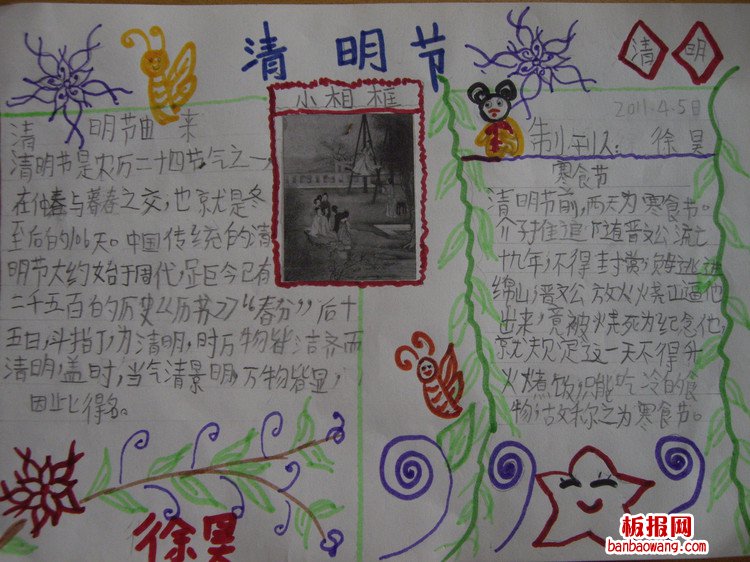 清 明 节
清 明
2011.4.5日
小相框
清 明节由来
清明节是农历二十四节气之一,
在仲春与暮春之交,也就是冬
至后的106天。中国传统的清
明节大约始于周代,距今已有
二千五百的历史《历书》:“春分”后十
五日,斗指丁,为清明,时万物皆洁齐而
清明,盖时,当气清景明,万物皆显,
因此得名。
徐昊
制刊人: 徐昊
寒食节
清明节前,两天为寒食节。
介子推追随晋文公流亡
十九年,不得封赏,
绵山,晋文公放火烧山逼他
出来,竟被烧死为纪念他,
就规定这一天不得升
火煮饭,只能吃冷的食
物,古文称之为寒食节。
板报网
banbaowang.com